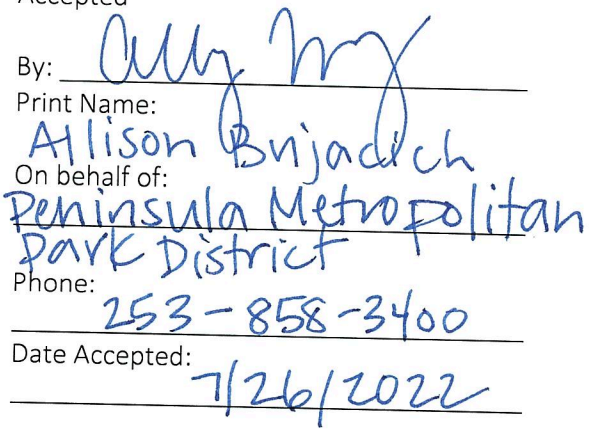 Accepted
By:
Print Name:
Allison Bujacich
On behalf of:
Peninsula Metropolitan
Park District
Phone:
253-858-3400
Date Accepted:
7/26/2022